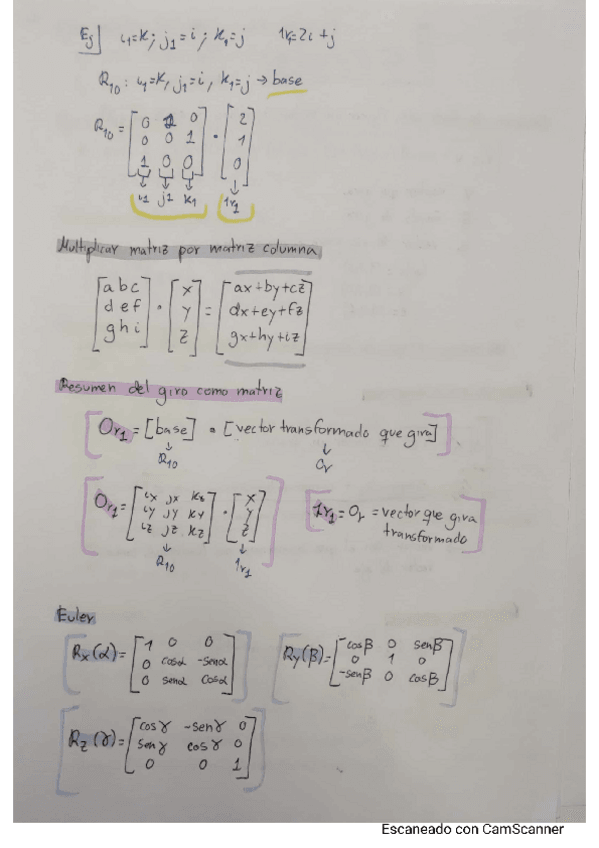 Ej] i1=K; j1=i; k1=j 1r=2i+j
R10: i1=K, j1=i, k1=j → base
R10 = [0 1 0; 0 0 1; 1 0 0] · [2; 1; 0]
i1 j1 k1 1r1
Multiplicar matriz por matriz columna
[a b c; d e f; g h i] · [x; y; z] = [ax+by+cz; dx+ey+fz; gx+hy+iz]
Resumen del giro como matriz
0r1 = [base] · [vector transformado que gira]
R10 0r
0r1 = [ix jx kx; iy jy ky; iz jz kz] · [x; y; z] 1r1 = 0r = vector que gira
transformado
R10 1r1
Euler
Rx(α) = [1 0 0; 0 cosα -senα; 0 senα cosα] Ry(β) = [cosβ 0 senβ; 0 1 0; -senβ 0 cosβ]
Rz(γ) = [cosγ -senγ 0; senγ cosγ 0; 0 0 1]
Escaneado con CamScanner